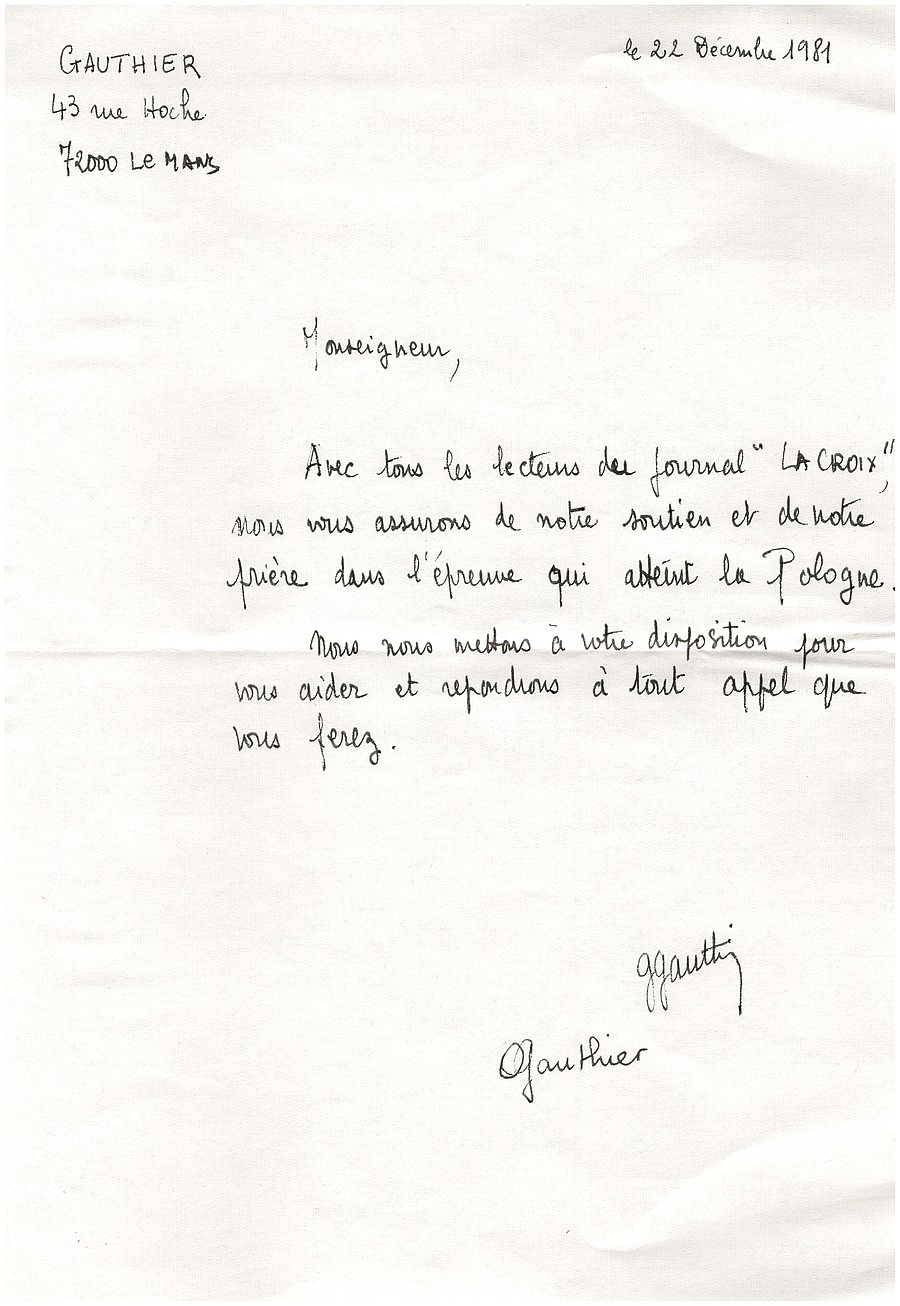 GAUTHIER
le 22 Décembre 1981
43 rue Hoche
72000 Le MANS
Monseigneur,
Avec tous les lecteurs du journal "LA CROIX",
nous vous assurons de notre soutien et de notre
prière dans l'épreuve qui atteint la Pologne.
Nous nous mettons à votre disposition pour
vous aider et repondrons à tout appel que
vous ferez.
ggauthier
OGauthier